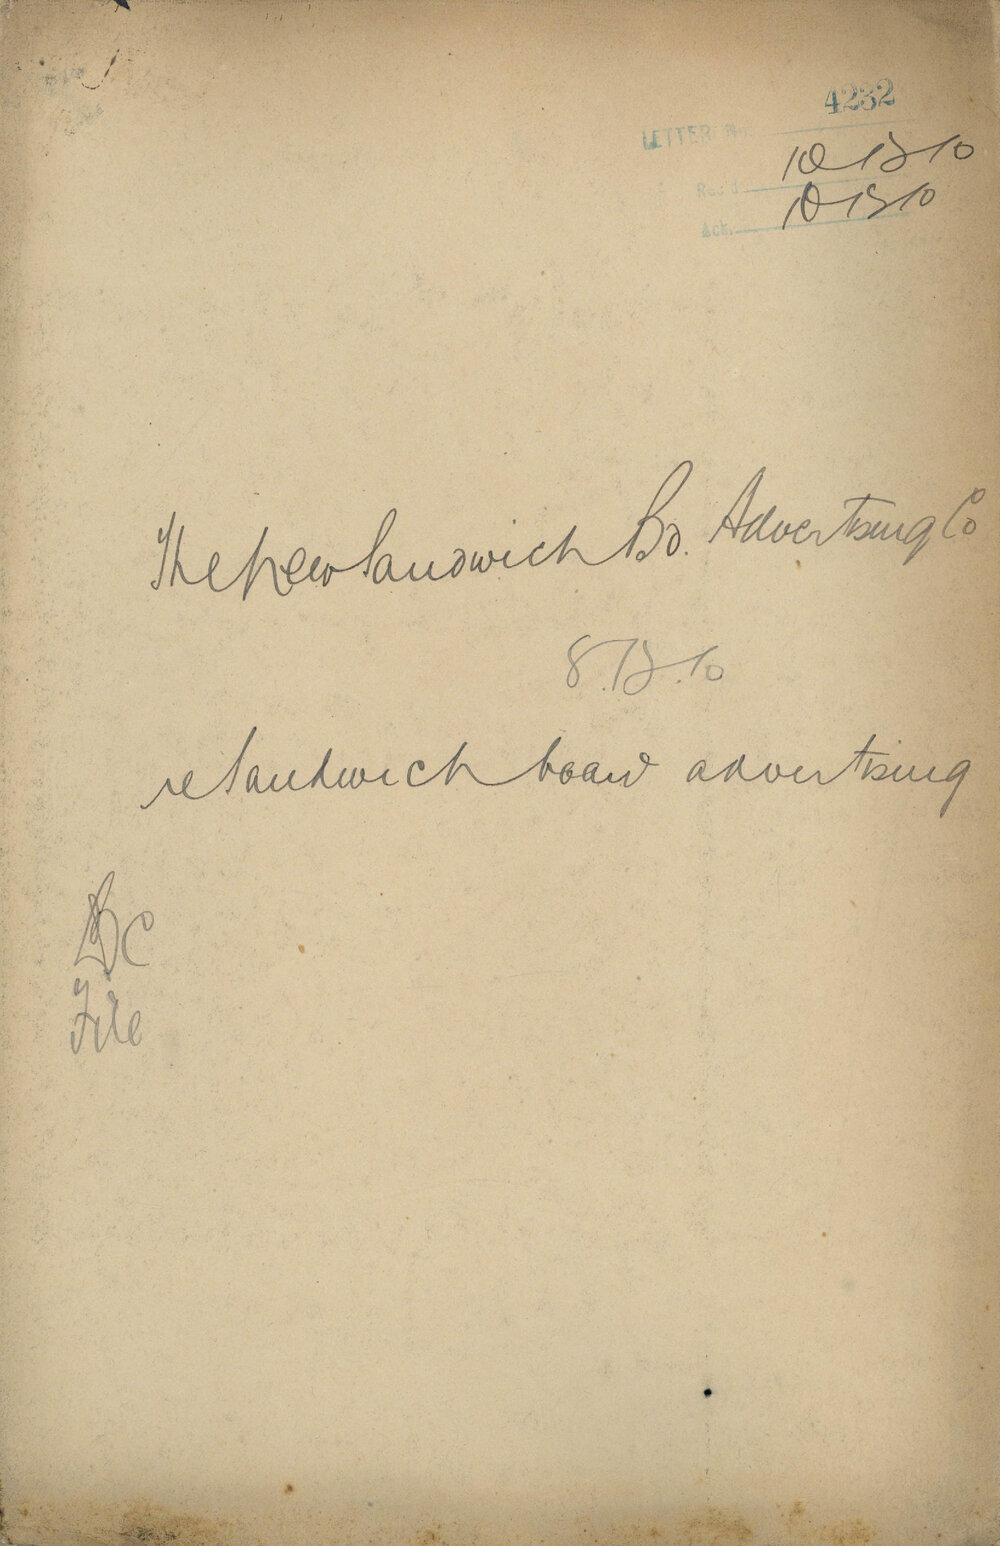 4232
LETTER No.
Rec'd 10/12/10
Ack. 10/12/10
The New Sandwich Bd. Advertising Co
8.12.10
re Sandwich board advertising
File